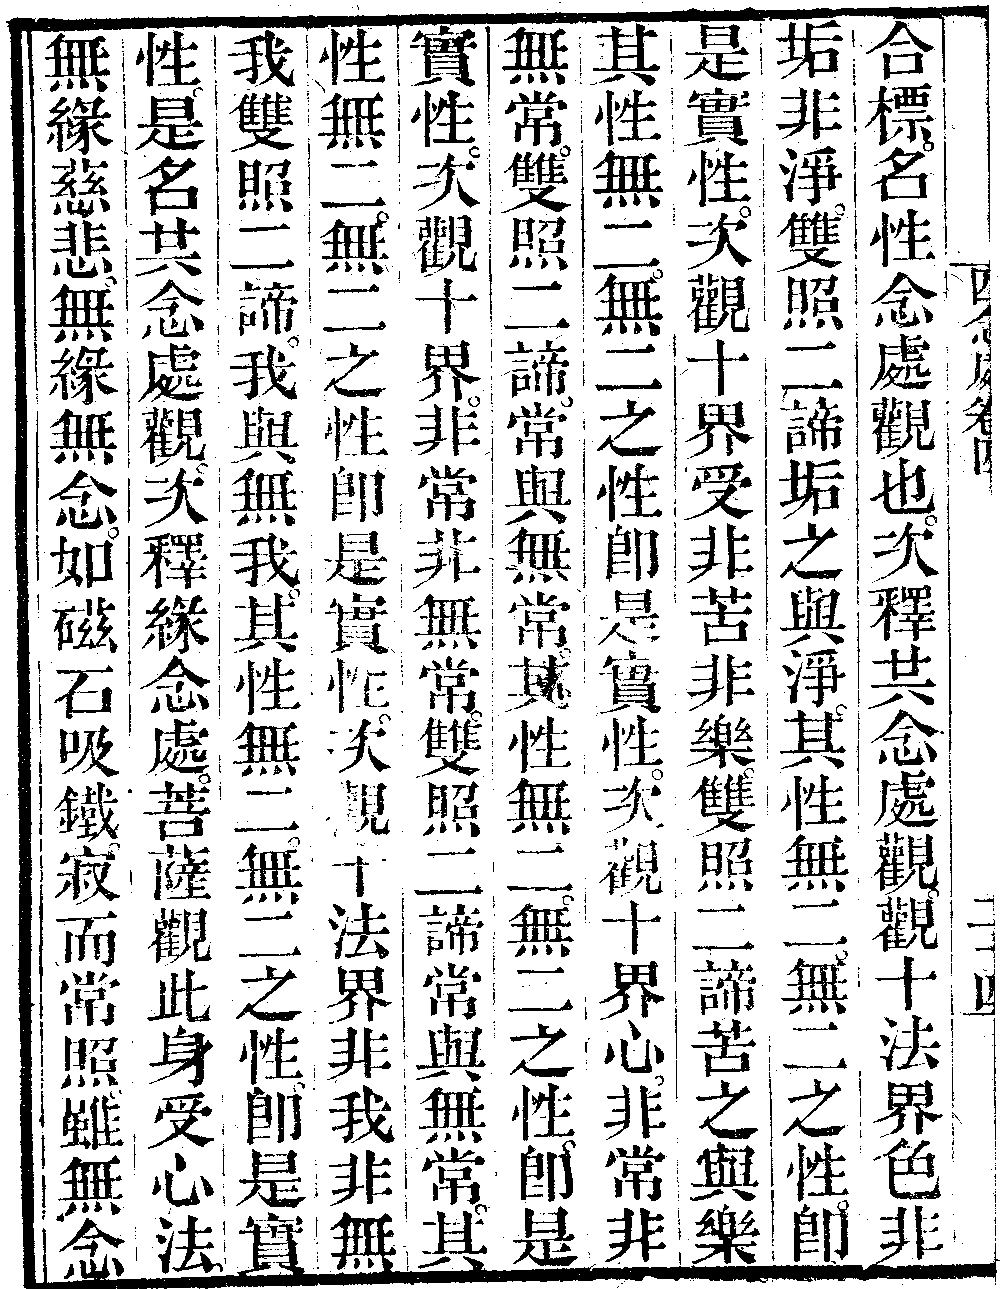 四念處卷四　二十四
合標。名性念處觀也。次釋共念處觀。觀十法界色非
垢非淨。雙照二諦垢之與淨。其性無二。無二之性。卽
是實性。次觀十界受非苦非樂。雙照二諦苦之與樂
其性無二。無二之性卽是實性。次觀十界心。非常非
無常。雙照二諦。常與無常。其性無二。無二之性。卽是
實性。次觀十界。非常非無常。雙照二諦常與無常。其
性無二。無二之性卽是實性。次觀十法界非我非無
我雙照二諦。我與無我。其性無二。無二之性。卽是實
性。是名共念處觀。次釋緣念處。菩薩觀此身受心法。
無緣慈悲。無緣無念。如磁石吸鐵。寂而常照。雖無念